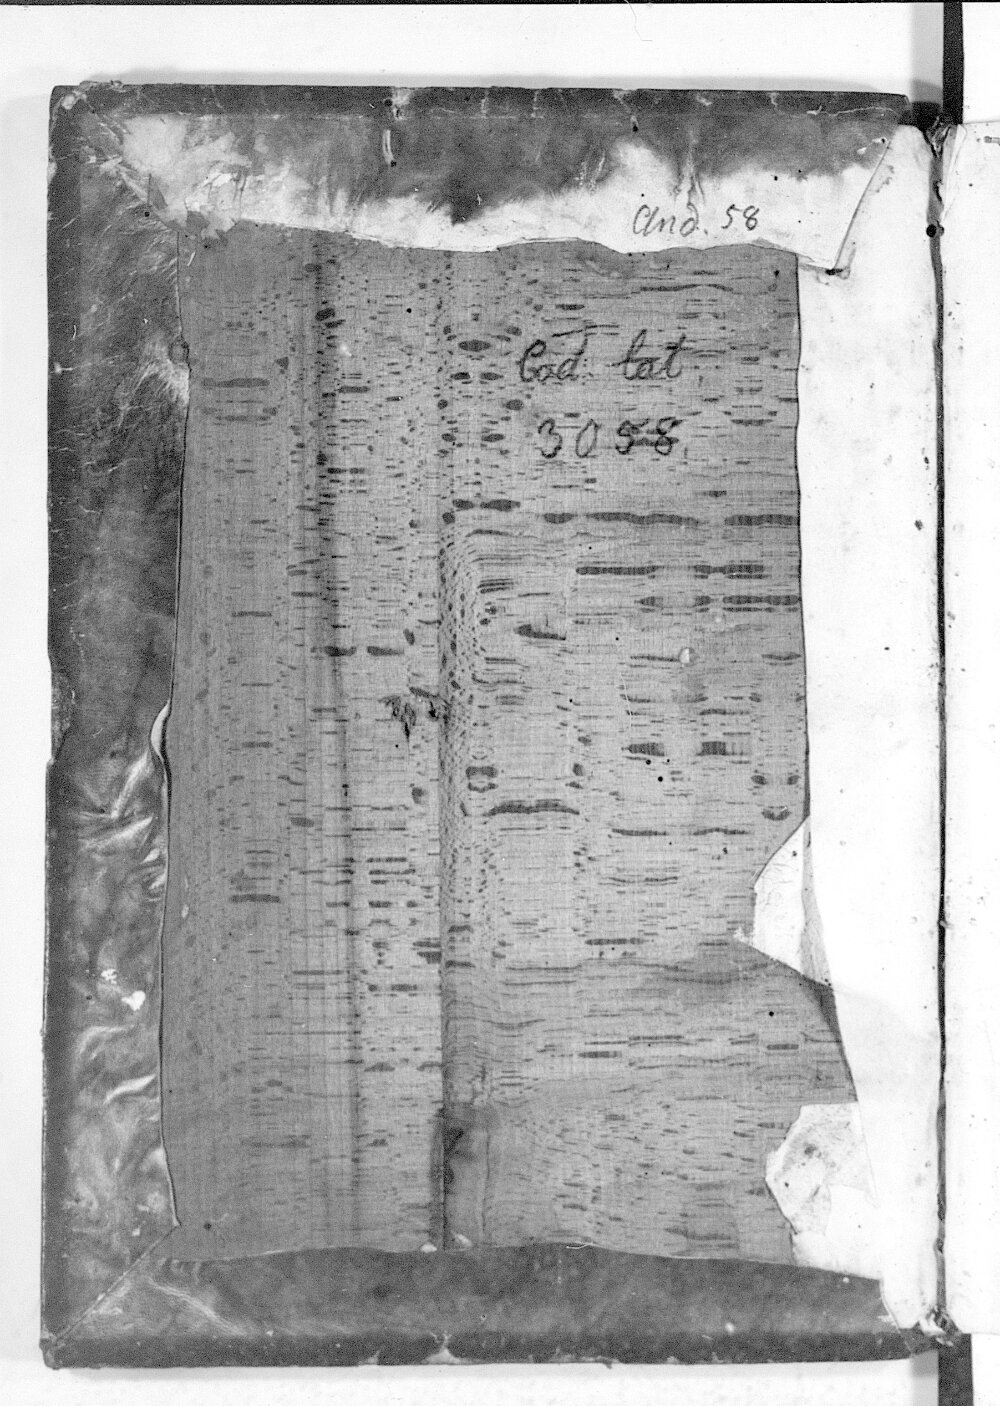 And. 58
Cod. lat.
3058